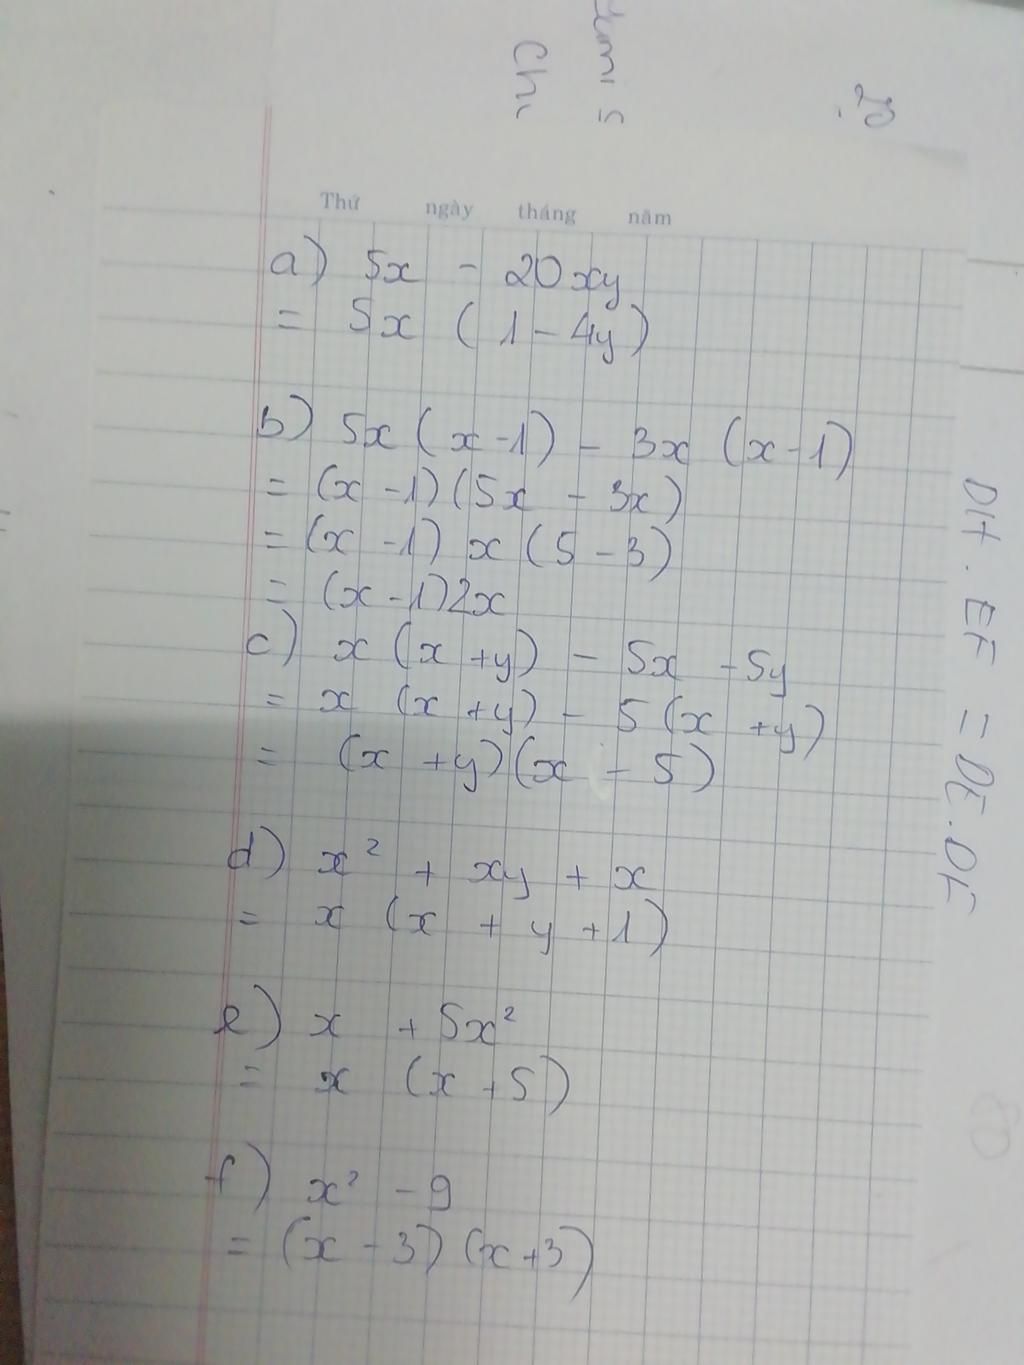 Chi
Thứ ngày tháng năm
a) 5x - 20xy
= 5x (1 - 4y)
b) 5x (x - 1) - 3x (x - 1)
= (x - 1) (5x - 3x)
= (x - 1) x (5 - 3)
= (x - 1) 2x
c) x (x + y) - 5x - 5y
= x (x + y) - 5 (x + y)
= (x + y) (x - 5)
d) x² + xy + x
= x (x + y + 1)
e) x + 5x²
= x (x + 5)
f) x² - 9
= (x - 3) (x + 3)
DH . EF = DE . DF